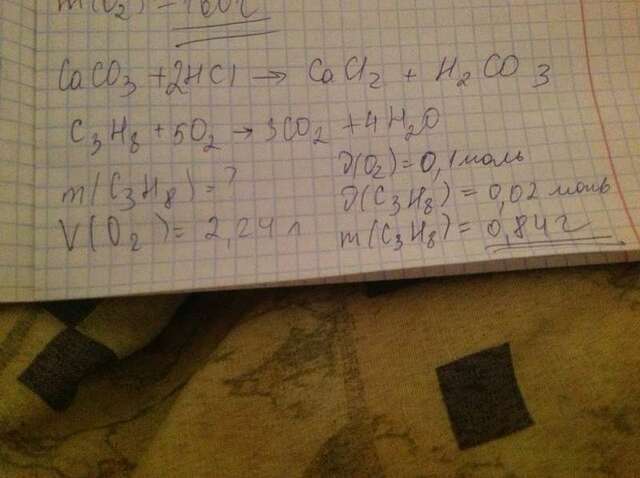 m(O₂) = 160 г
CaCO₃ + 2HCl → CaCl₂ + H₂CO₃
C₃H₈ + 5O₂ → 3CO₂ + 4H₂O
m(C₃H₈) = ?
V(O₂) = 2,24 л
∂(O₂) = 0,1 моль
∂(C₃H₈) = 0,02 моль
m(C₃H₈) = 0,84 г